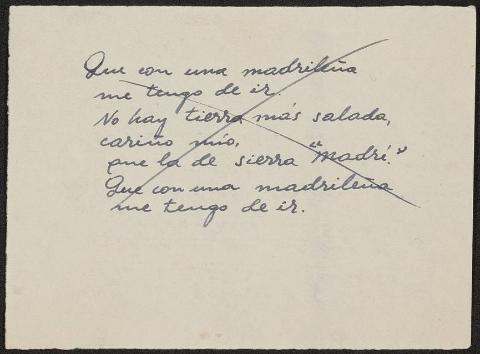 Que con una madrileña
me tengo de ir.
No hay tierra más salada,
cariño mío,
que la de sierra "Madrí."
Que con una madrileña
me tengo de ir.